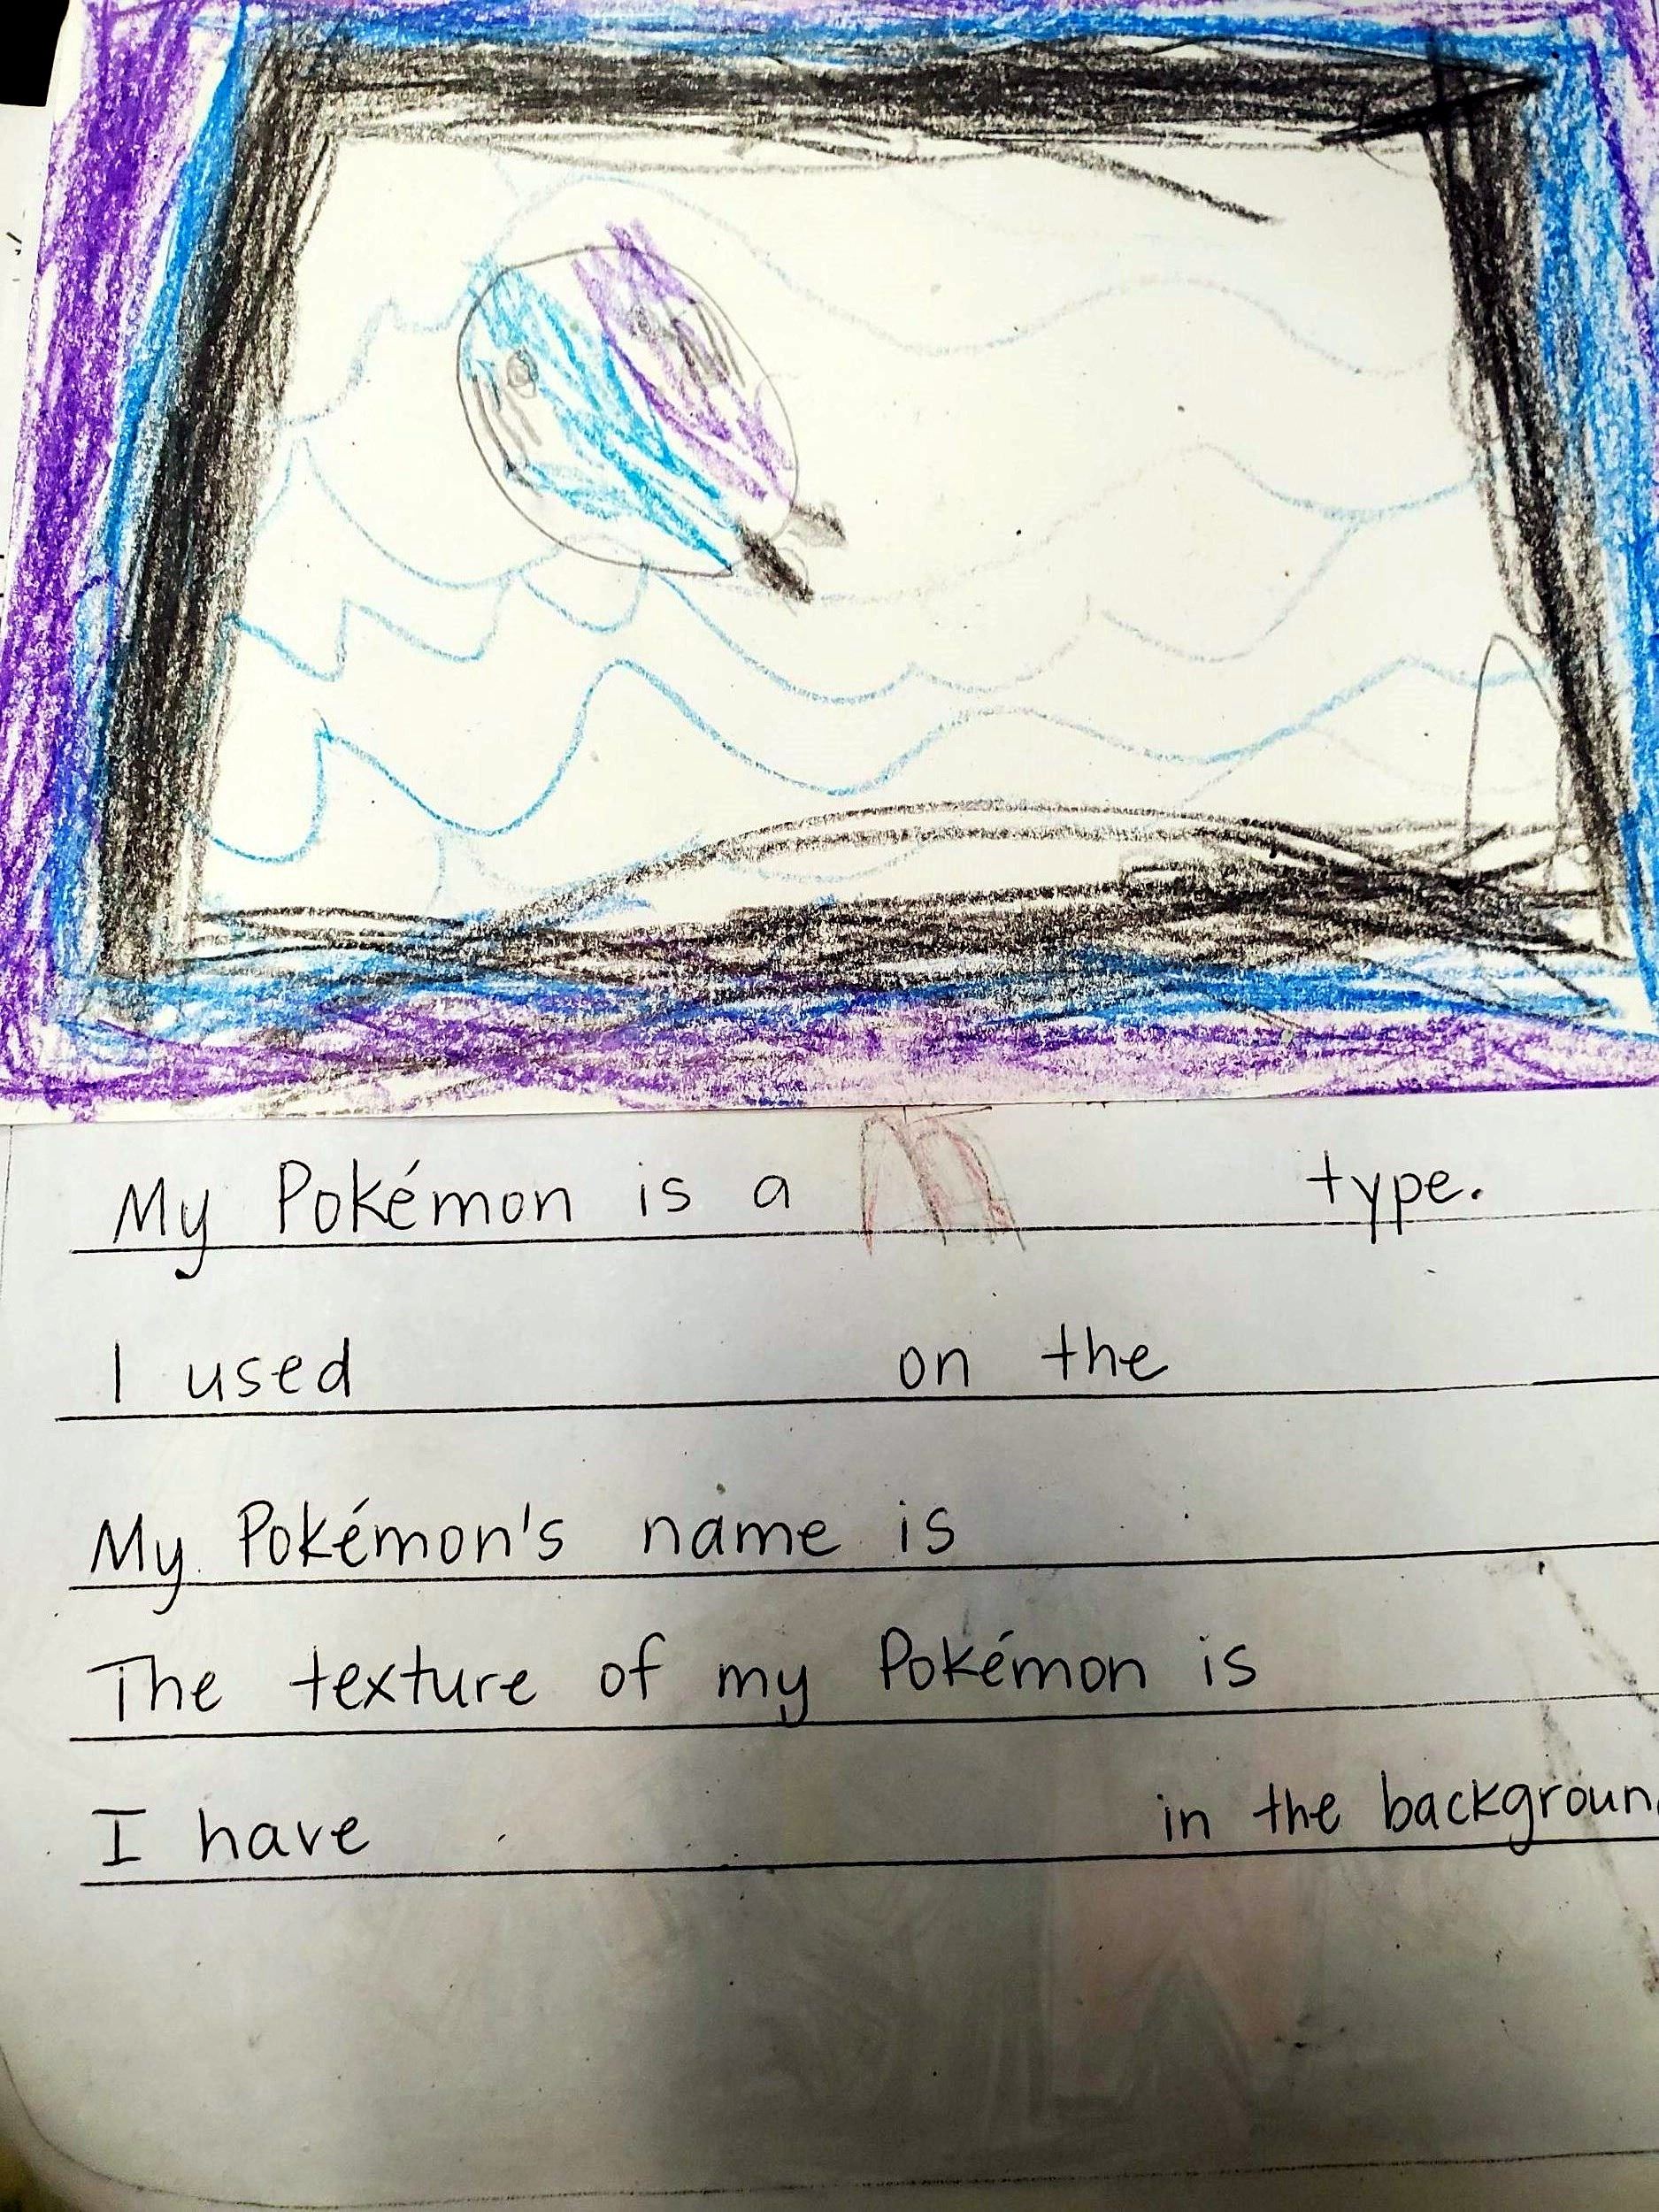 My Pokémon is a type.
I used on the
My Pokémon's name is
The texture of my Pokémon is
I have in the backgroun